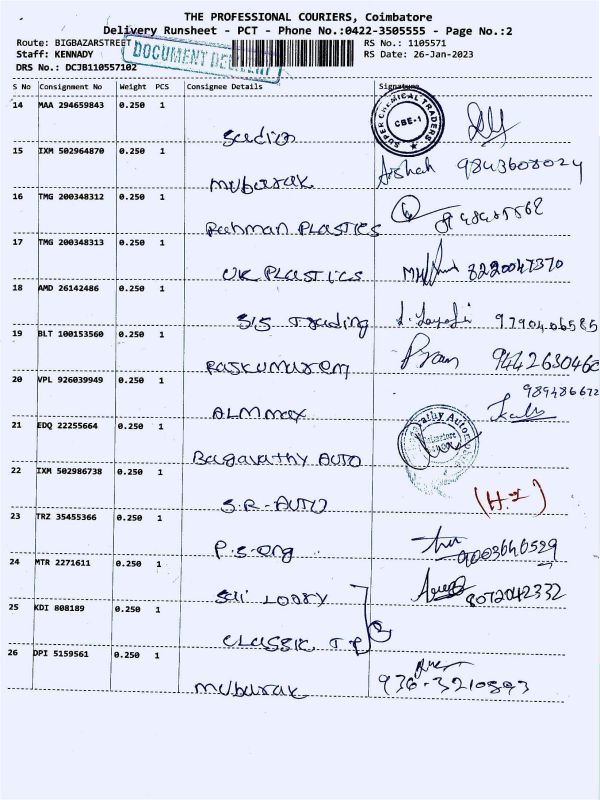 THE PROFESSIONAL COURIERS, Coimbatore
Delivery Runsheet - PCT - Phone No.:0422-3505555 - Page No.:2
Route: BIGBAZARSTREET RS No.: 1105571
Staff: KENNADY DOCUMENT RS Date: 26-Jan-2023
DRS No.: DCJB110557102
S No Consignment No Weight PCS Consignee Details Signature
14 MAA 294659843 0.250 1 SUPER CHEMICAL TRADERS CBE-1
15 IXM 502964870 0.250 1 Arshah 9843608024
mubarak
16 TMG 200348312 0.250 1
Rahman PLASTICS
17 TMG 200348313 0.250 1
UK PLASTICS 8220047370
18 AMD 26142486 0.250 1
SIS Trading 9790406585
19 BLT 100153560 0.250 1 Pram 9442630460
20 VPL 926039949 0.250 1 989486672
ALMmax
21 EDQ 22255664 0.250 1
Bagavathy AUTO
22 IXM 502986738 0.250 1
S.R-AUTO (H.I)
23 TRZ 35455366 0.250 1
9003646529
24 MTR 2271611 0.250 1
8072042332
25 KDI 808189 0.250 1
CLASSIC
26 DPI 5159561 0.250 1
mubarak 936-3210593